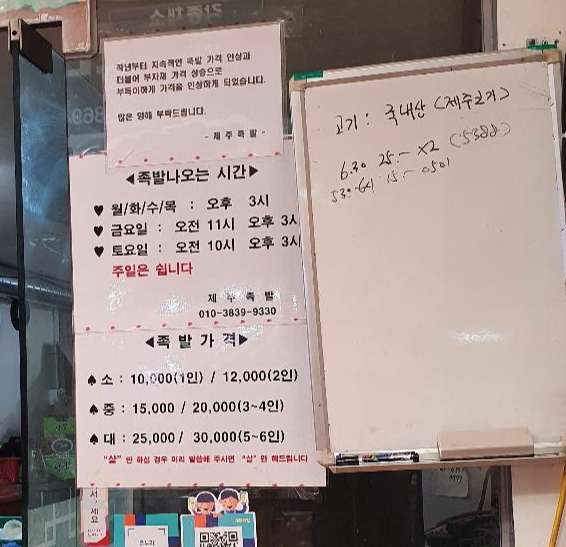 작년부터 지속적인 족발 가격 인상과
더불어 부자재 가격 상승으로
부득이하게 가격을 인상하게 되었습니다.
많은 양해 부탁드립니다.
- 제주족발 -
◀족발나오는 시간▶
♥ 월/화/수/목 : 오후 3시
♥ 금요일 : 오전 11시 오후 3시
♥ 토요일 : 오전 10시 오후 3시
주일은 쉽니다
제주족발
010-3839-9330
◀족발가격▶
♠ 소 : 10,000(1인) / 12,000(2인)
♠ 중 : 15,000 / 20,000(3~4인)
♠ 대 : 25,000 / 30,000(5~6인)
"살" 만 하실 경우 미리 말씀해 주시면 "살" 만 해드립니다
고기 : 국내산 (제주고기)
6.30 25.- X2 (5388)
15.- 0501